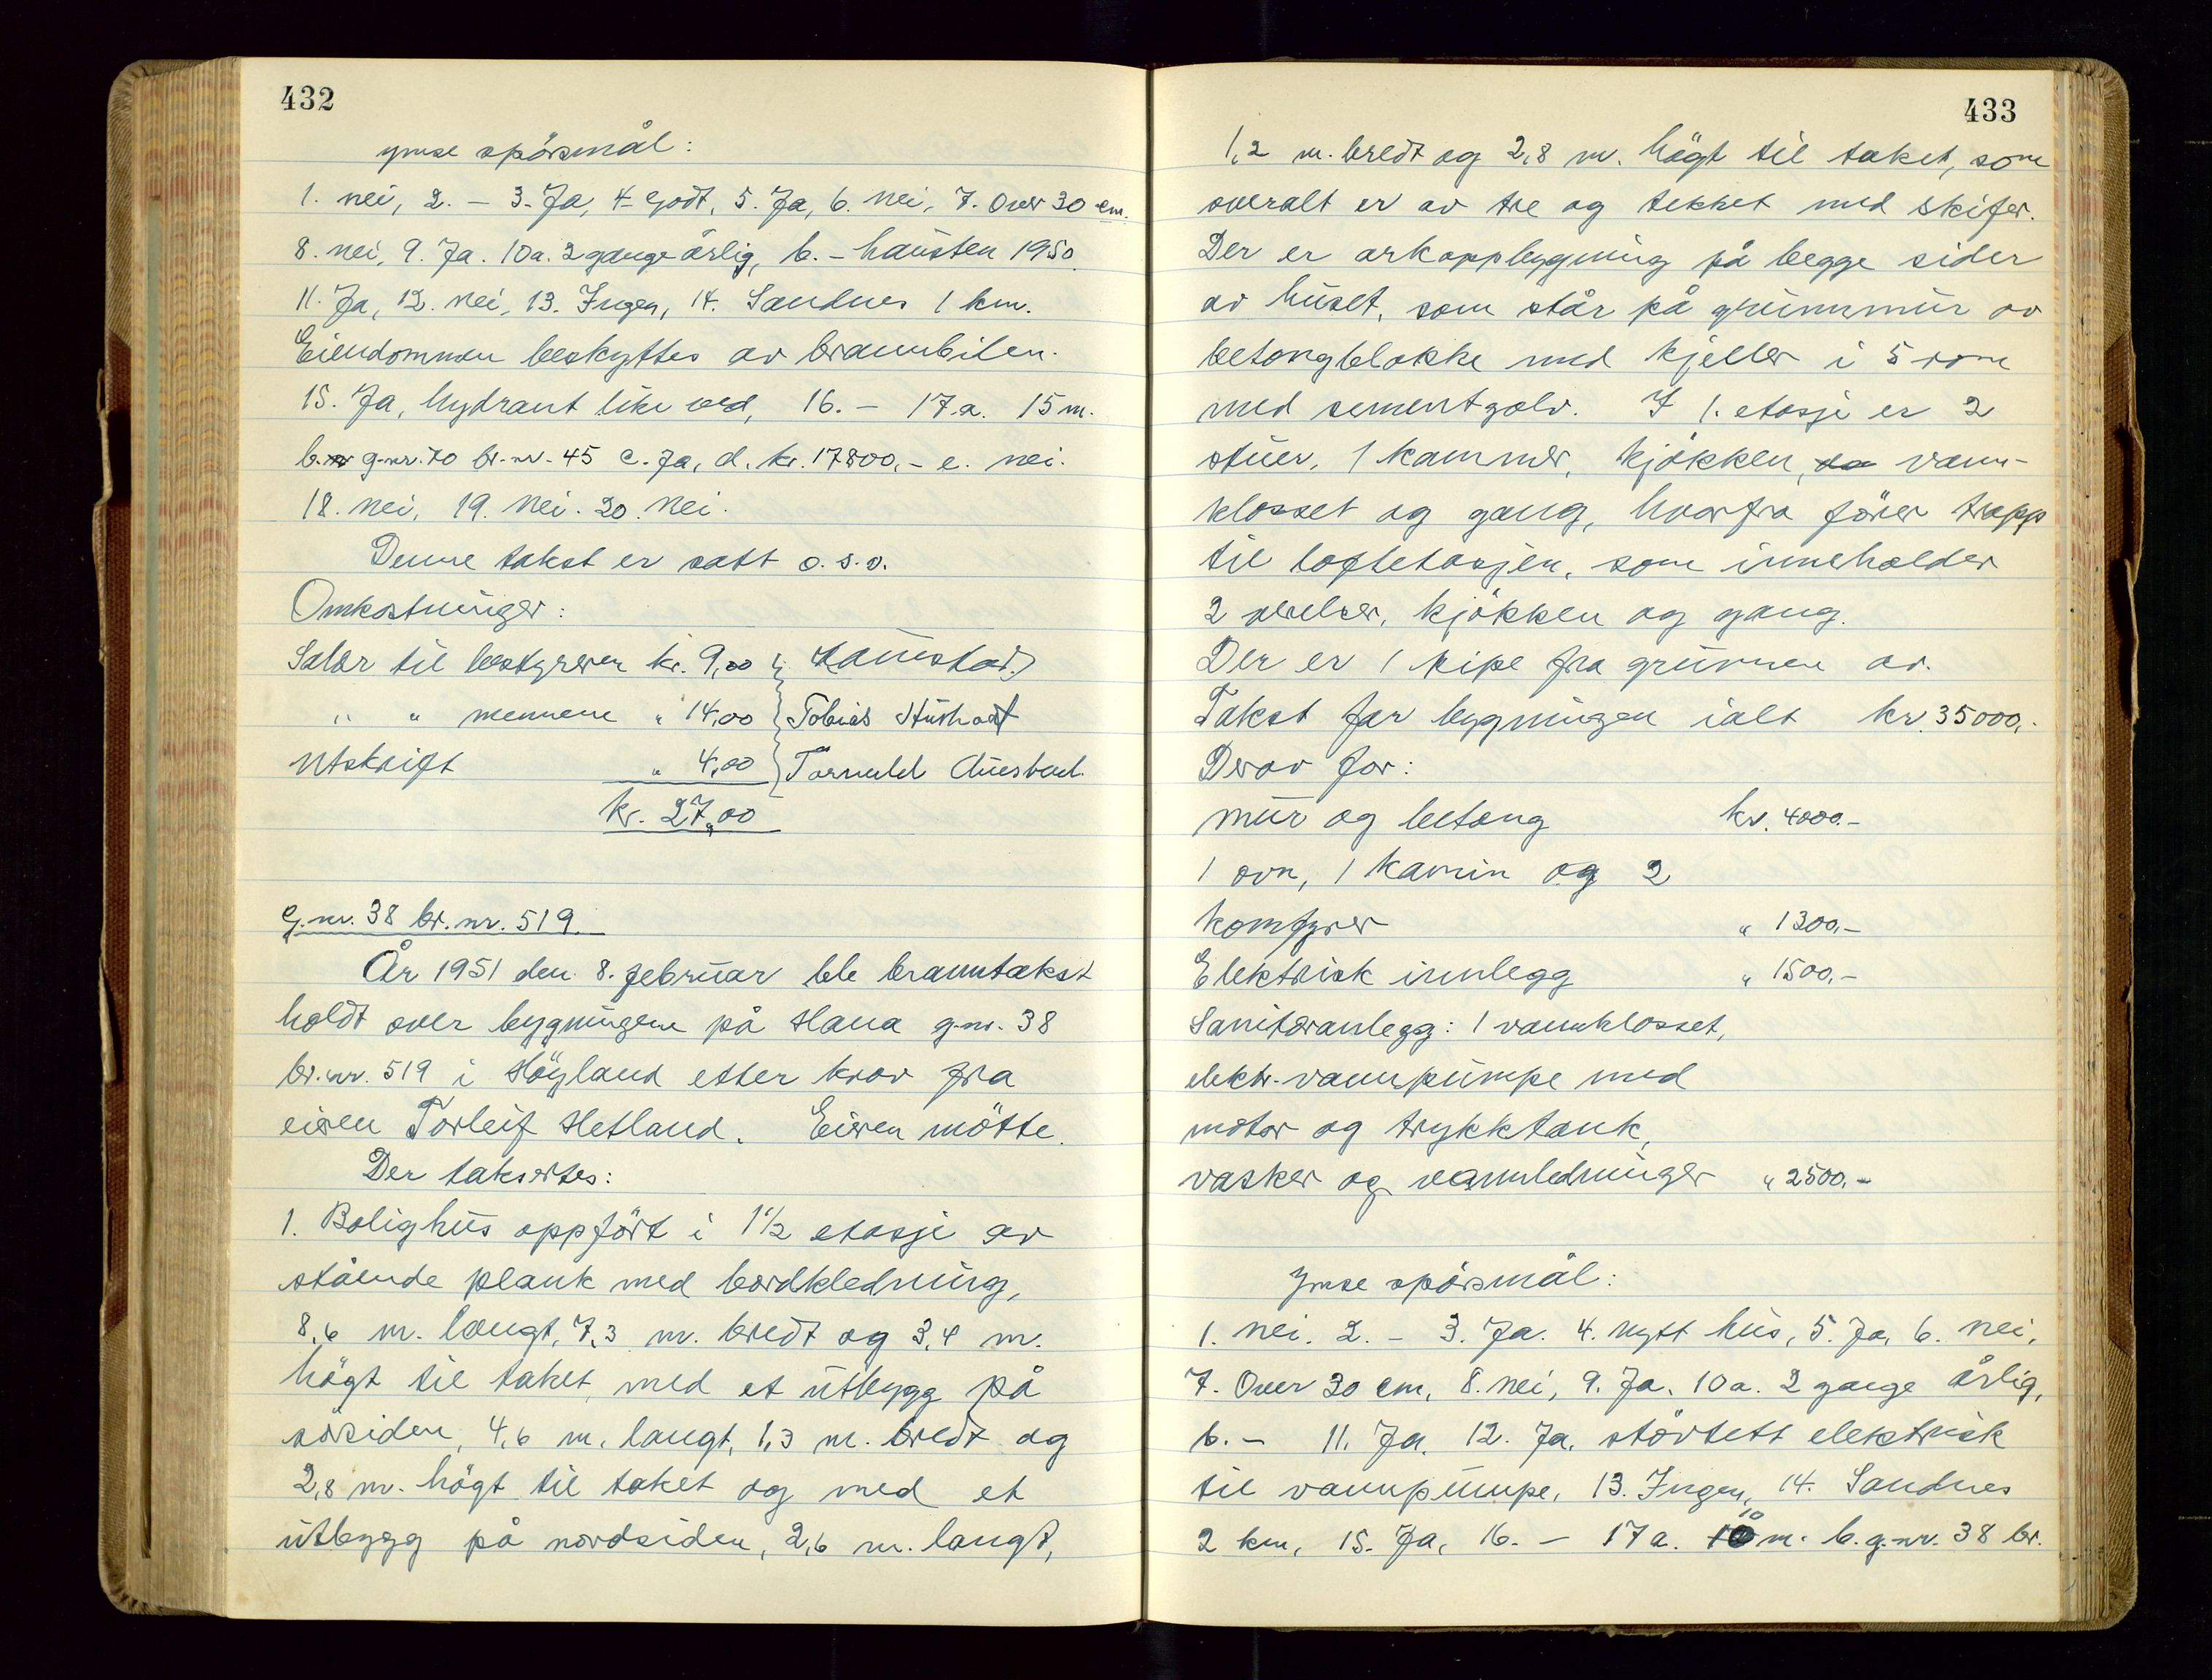 432
ymse spörsmål:
1. nei, 2. – 3. Ja, 4. Godt, 5. Ja, 6. nei, 7. Over 30 cm.
8. nei, 9. Ja. 10a. 2 gange årlig, b. – hausten 1950.
11. Ja, 12. nei, 13. Ingen, 14. Sandnes 1 km.
Eiendommen beskyttes av brannbilen.
15. Ja, hydrant like ved, 16. – 17.a. 15 m.
b. g.nr. 70 br.nr. 45 c. Ja, d. kr. 17800,- e. nei.
18. nei, 19. nei. 20. nei.
Denne takst er satt o.s.v.
Omkostninger:
Salær til bestyreren kr. 9,00
" " mennene " 14,00 Tobias
Utskrift " 4,00
kr. 27,00
G.nr. 38 br.nr. 519.
År 1951 den 8. februar ble branntakst
holdt over bygningene på Hana g.nr. 38
br.nr. 519 i Höyland etter krav fra
eieren Torleif Hetland. Eieren mötte.
Der takstertes:
1. Bolighus oppfört i 1½ etasje av
stående plank med bordkledning,
8,6 m. langt, 7,3 m. bredt og 3,4 m.
högt til taket, med et utbygg på
sörsiden, 4,6 m. langt, 1,3 m. bredt og
2,8 m. högt til taket og med et
utbygg på nordsiden, 2,6 m. langt,
433
1,2 m. bredt og 2,8 m. högt til taket, som
overalt er av tre og tekket med skifer.
Der er arkoppbygning på begge sider
av huset, som står på grunnmur av
betongblokke med kjeller i 5 rom
med sementgolv. I 1. etasje er 2
stuer, 1 kammer, kjökken, vann-
klosset og gang, hvorfra förer trapp
til loftetasjen, som inneholder
2 værelser, kjökken og gang.
Der er 1 pipe fra grunnen av.
Takst for bygningen ialt kr. 35000,-
Derav for:
mur og betong kr. 4000.-
1 ovn, 1 kamin og 2
komfyrer " 1300,-
Elektrisk innlegg " 1500,-
Sanitæranlegg: 1 vannklosset,
elektr. vannpumpe med
motor og trykktank,
vasker og vannledninger " 2500,-
Ymse spörsmål:
1. nei. 2. – 3. Ja. 4. nytt hus, 5. Ja, 6. nei,
7. Over 30 cm, 8. nei, 9. Ja. 10a. 2 gange årlig,
b. – 11. Ja. 12. Ja, störtett elektrisk
til vannpumpe, 13. Ingen, 14. Sandnes
2 km, 15. Ja, 16. – 17a. 10 m. b. g.nr. 38 br.